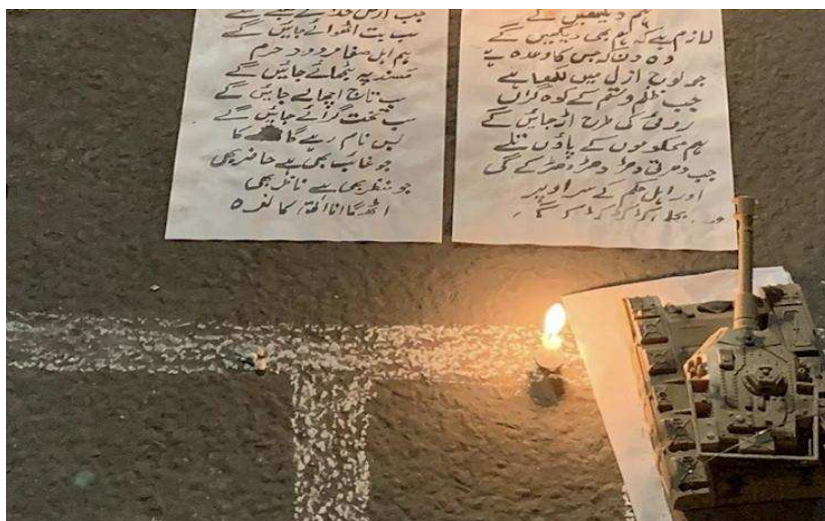 ہم دیکھیں گے
لازم ہے کہ ہم بھی دیکھیں گے
وہ دن کہ جس کا وعدہ ہے
جو لوح ازل میں لکھا ہے
جب ظلم و ستم کے کوہ گراں
روئی کی طرح اڑ جائیں گے
ہم محکوموں کے پاؤں تلے
جب دھرتی دھڑ دھڑ دھڑکے گی
اور اہل حکم کے سر اوپر
بجلی کڑ کڑ کڑکے گی
جب ارض خدا کے کعبے سے
سب بت اٹھوائے جائیں گے
ہم اہل صفا مردود حرم
مسند پہ بٹھائے جائیں گے
سب تاج اچھالے جائیں گے
سب تخت گرائے جائیں گے
بس نام رہے گا کا
جو غائب بھی ہے حاضر بھی
جو منظر بھی ہے ناظر بھی
اٹھے گا انا الحق کا نعرہ